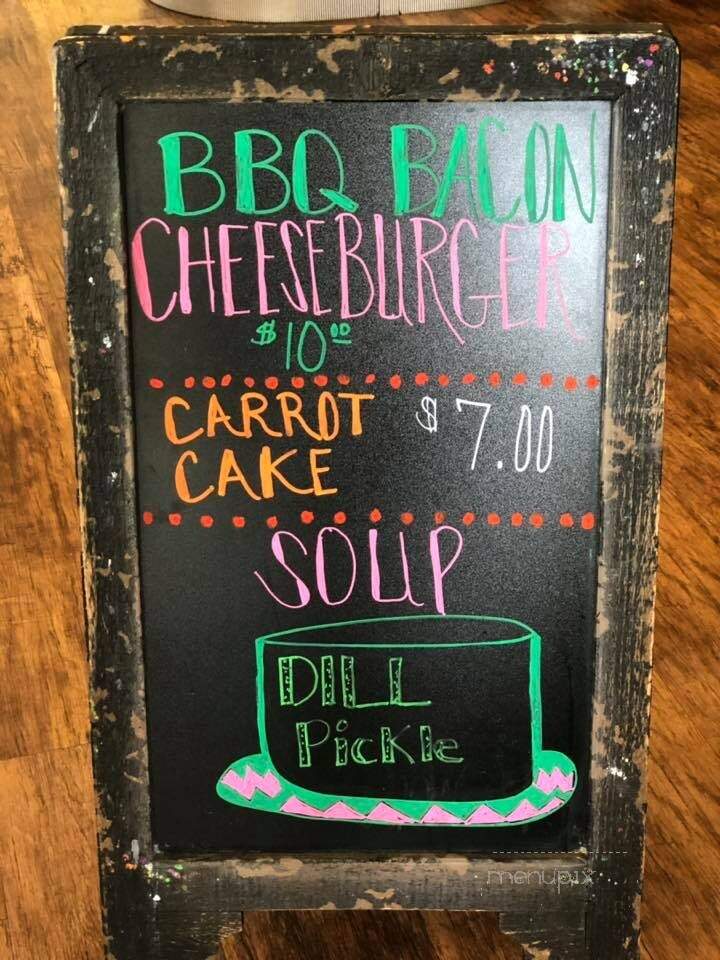 BBQ BACON
CHEESEBURGER
$10.00
CARROT $7.00
CAKE
SOUP
DILL
PicKle
menupix